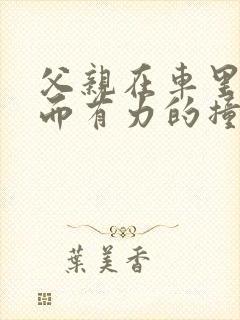 父親在車里
而有力的撞
葉美香